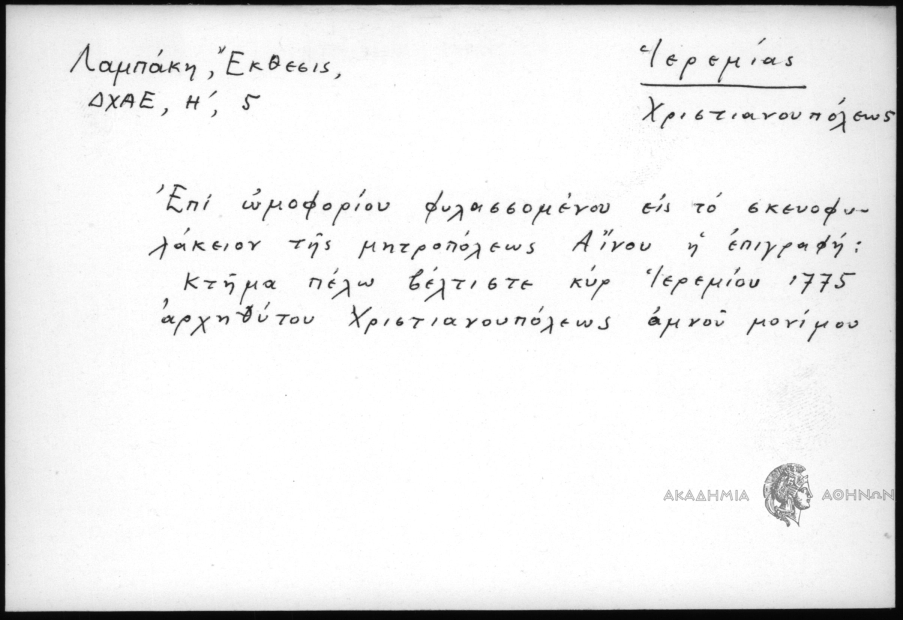 Λαμπάκη, Ἔκθεσις,
ΔΧΑΕ, Η΄, 5
Ἱερεμίας
Χριστιανουπόλεως
Ἐπί ὠμοφορίου φυλασσομένου εἰς τό σκευοφυ-
λάκειον τῆς μητροπόλεως Αἴνου ἡ ἐπιγραφή:
Κτῆμα πέλω βέλτιστε κύρ Ἱερεμίου 1775
ἀρχηθύτου Χριστιανουπόλεως ἀμνοῦ μονίμου
ΑΚΑΔΗΜΙΑ ΑΘΗΝΩΝ